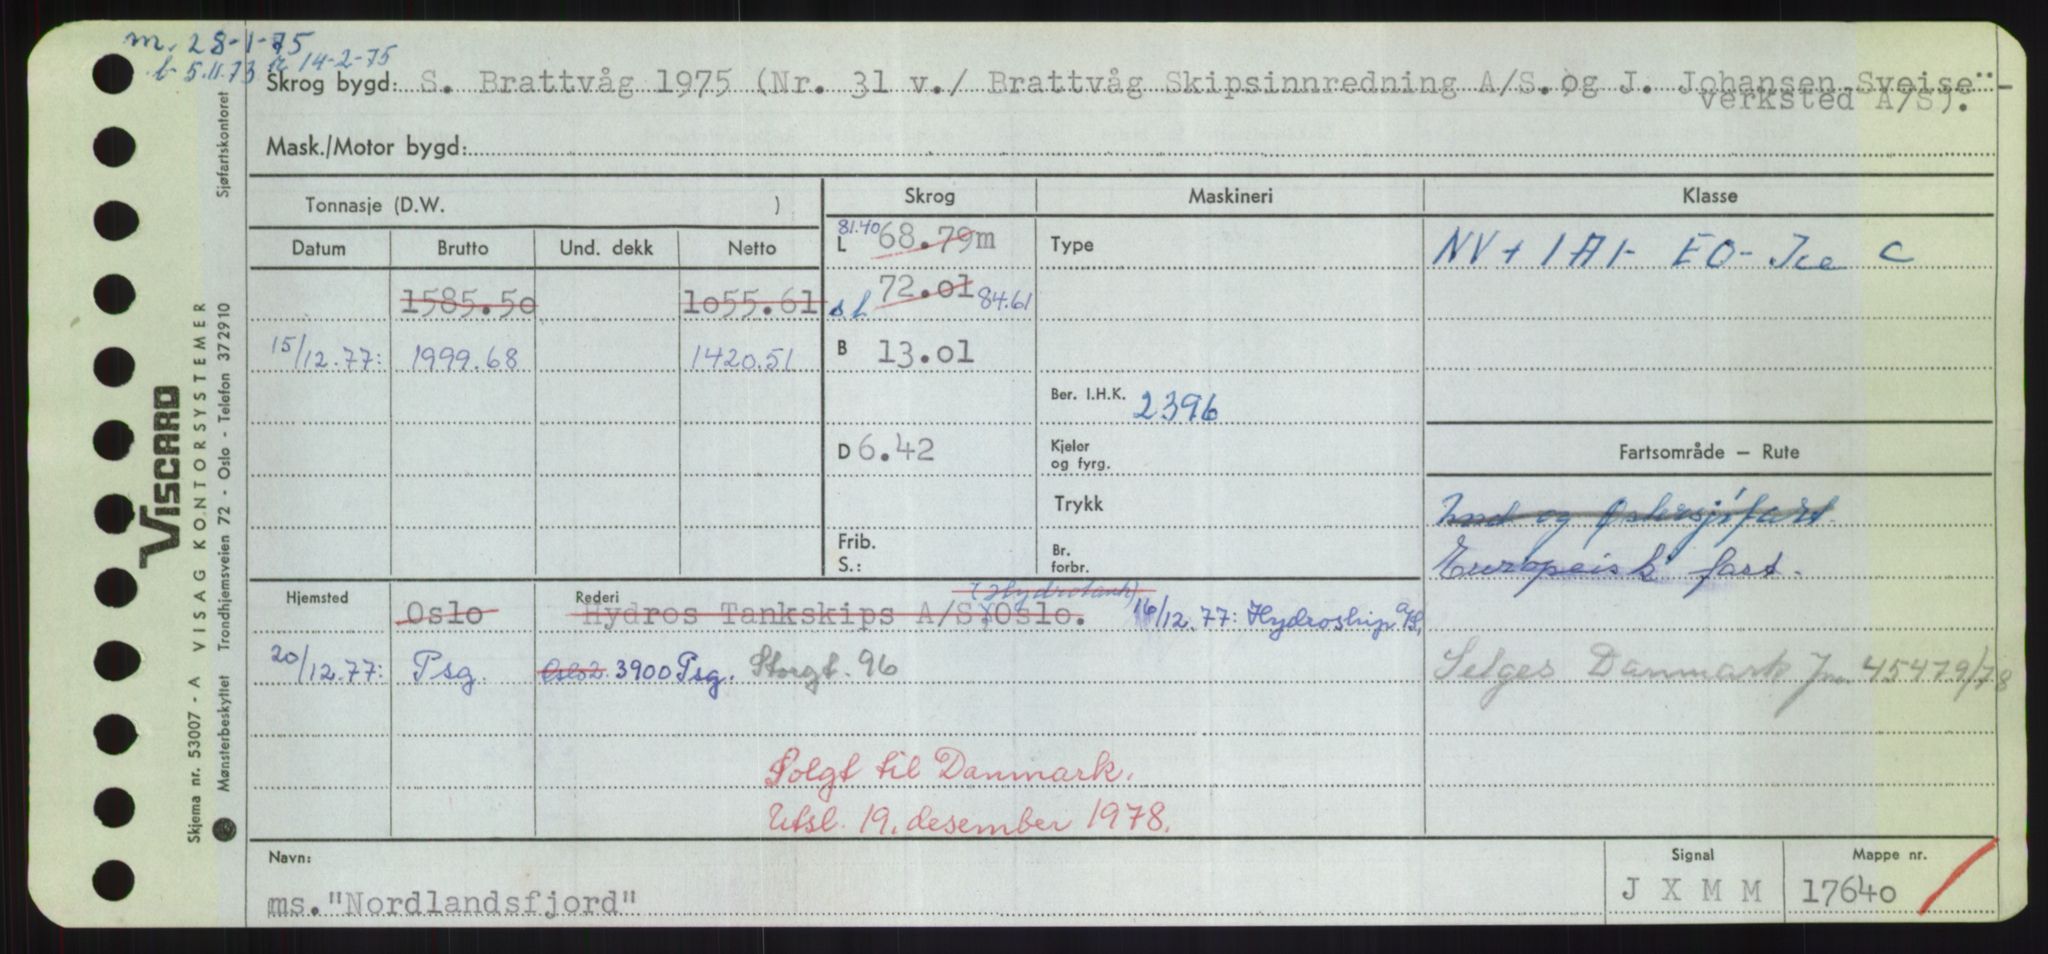 m. 28-1-75
b. 5.11.73 14-2-75
Skrog bygd: S. Brattvåg 1975 (Nr. 31 v./ Brattvåg Skipsinnredning A/S. og J. Johansen Sveise-
verksted A/S).
Mask./Motor bygd:
Tonnasje (D.W. )
Skrog
Maskineri
Klasse
Datum
Brutto
Und. dekk
Netto
81.40
L 68.79m
Type
NV + 1A1- EO- Ice C
1585.50
1055.61
s.l. 72.01 84.61
15/12.77:
1999.68
1420.51
B 13.01
Ber. I.H.K. 2396
D 6.42
Kjeler
og fyrg.
Fartsområde – Rute
Trykk
Ind og Østersjøfart.
Frib.
S.:
Br.
forbr.
Europeisk fart.
Hjemsted
Oslo
Rederi
(Hydrotank)
Hydros Tankskips A/S, Oslo.
16/12.77: Hydroship A/S,
20/12.77:
Psg.
Oslo 2. 3900 Psg. Storgt. 96
Selges Danmark Jnr 45479/78
Solgt til Danmark.
Utsl. 19. desember 1978.
Navn:
ms. "Nordlandsfjord"
Signal
J X M M
Mappe nr.
17640
VISCARD
Skjema nr. 53007 - A VISAG KONTORSYSTEMER
Mønsterbeskyttet Trondhjemsveien 72 - Oslo - Telefon 372910
Sjøfartskontoret